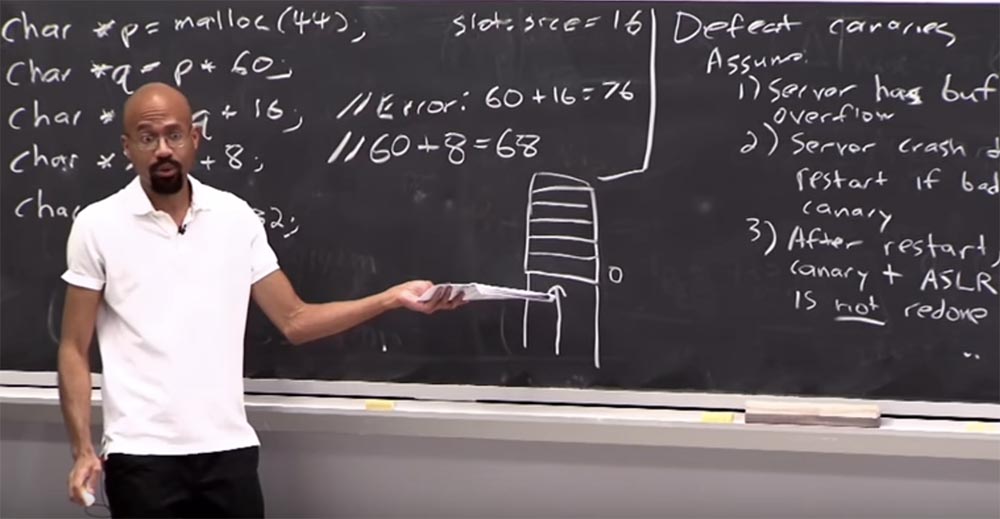 char *p = malloc(44);
char *q = p + 60;
char * q + 16;
char * + 8;
cha 32;
slot.size = 16
//Error: 60+16=76
//60+8=68
0
Defeat canaries
Assume:
1) Server has buf
overflow
2) Server crash
restart if bad
canary
3) After restart,
canary + ASLR
is not redone
..